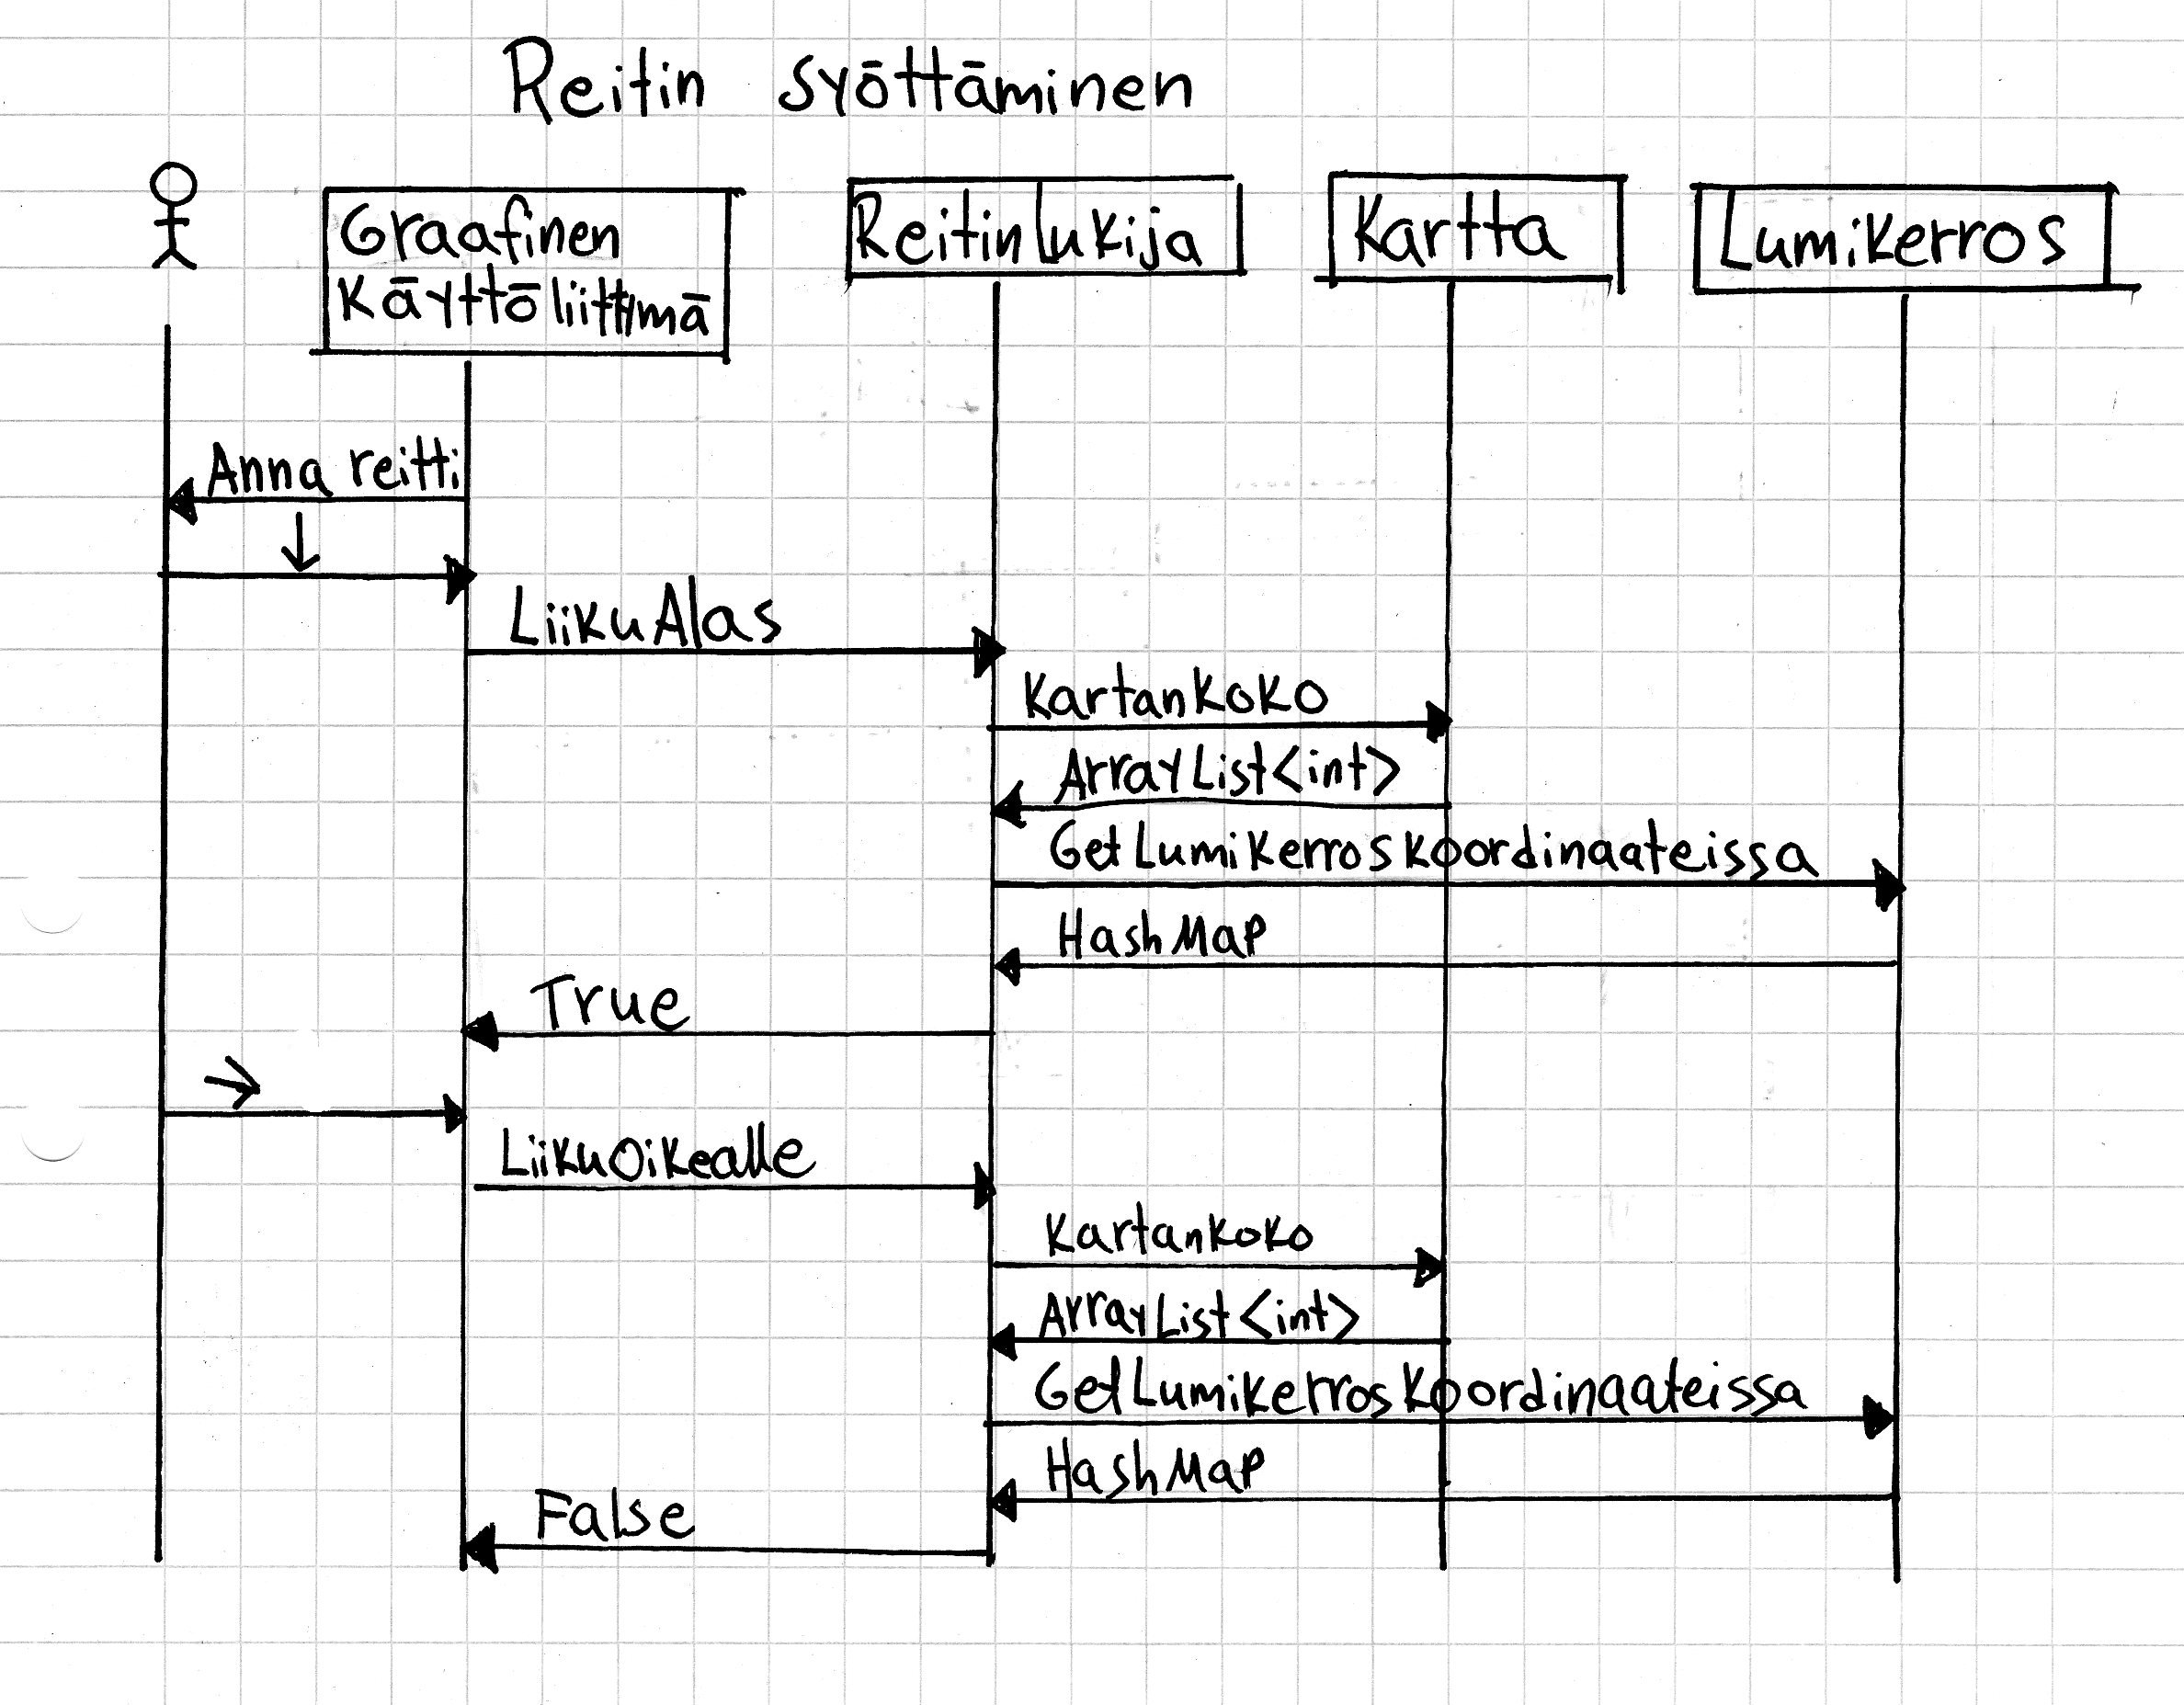 Reitin syöttäminen
Graafinen
Käyttöliittymä
Reitinlukija
Kartta
Lumikerros
Anna reitti
↓
LiikuAlas
Kartankoko
ArrayList<int>
GetLumikerroskoordinaateissa
HashMap
True
→
Liikuoikealle
Kartankoko
ArrayList<int>
GetLumikerroskoordinaateissa
HashMap
False